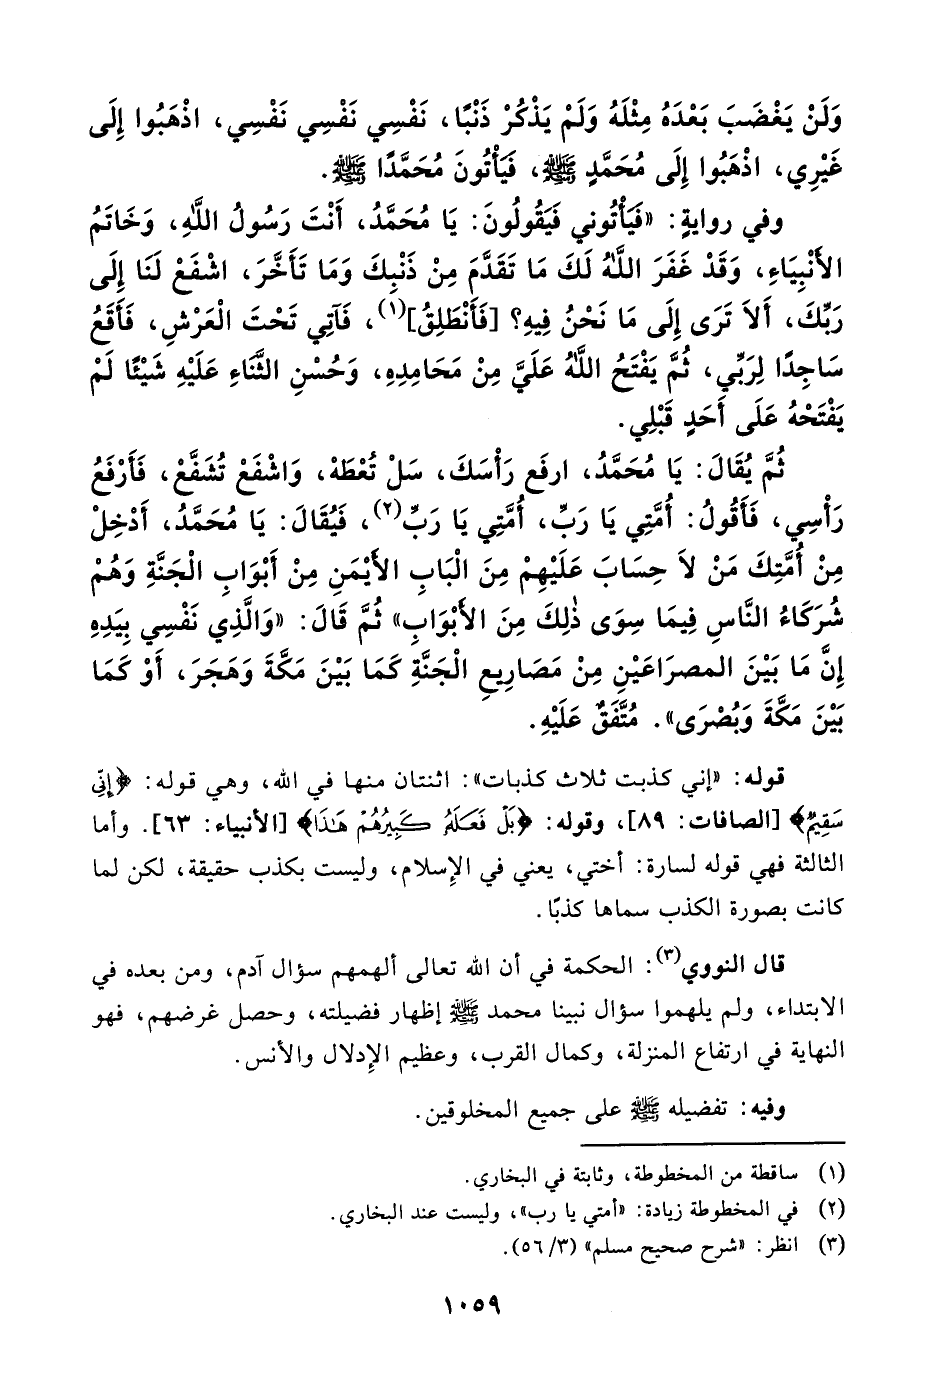 وَلَنْ يَغْضَبَ بَعْدَهُ مِثْلَهُ وَلَمْ يَذْكُرْ ذَنْبًا، نَفْسِي نَفْسِي نَفْسِي، اذْهَبُوا إِلَى
غَيْرِي، اذْهَبُوا إِلَى مُحَمَّدٍ ﷺ، فَيَأْتُونَ مُحَمَّدًا ﷺ.
وفي روايةٍ: «فَيَأْتُوني فَيَقُولُونَ: يَا مُحَمَّدُ، أَنْتَ رَسُولُ اللَّهِ، وَخَاتَمُ
الأَنْبِيَاءِ، وَقَدْ غَفَرَ اللَّهُ لَكَ مَا تَقَدَّمَ مِنْ ذَنْبِكَ وَمَا تَأَخَّرَ، اشْفَعْ لَنَا إِلَى
رَبِّكَ، أَلاَ تَرَى إِلَى مَا نَحْنُ فِيهِ؟ [فَأَنْطَلِقُ](١)، فَآتِي تَحْتَ الْعَرْشِ، فَأَقَعُ
سَاجِدًا لِرَبِّي، ثُمَّ يَفْتَحُ اللَّهُ عَلَيَّ مِنْ مَحَامِدِهِ، وَحُسْنِ الثَّنَاءِ عَلَيْهِ شَيْئًا لَمْ
يَفْتَحْهُ عَلَى أَحَدٍ قَبْلِي.
ثُمَّ يُقَالَ: يَا مُحَمَّدُ، ارفَع رَأْسَكَ، سَلْ تُعْطَهْ، وَاشْفَعْ تُشَفَّعْ، فَأَرْفَعُ
رَأْسِي، فَأَقُولُ: أُمَّتِي يَا رَبِّ، أُمَّتِي يَا رَبِّ(٢)، فَيُقَالَ: يَا مُحَمَّدُ، أَدْخِلْ
مِنْ أُمَّتِكَ مَنْ لاَ حِسَابَ عَلَيْهِمْ مِنَ الْبَابِ الأَيْمَنِ مِنْ أَبْوَابِ الْجَنَّةِ وَهُمْ
شُرَكَاءُ النَّاسِ فِيمَا سِوَى ذٰلِكَ مِنَ الأَبْوَابِ» ثُمَّ قَالَ: «وَالَّذِي نَفْسِي بِيَدِهِ
إِنَّ مَا بَيْنَ المصرَاعَيْنِ مِنْ مَصَارِيعِ الْجَنَّةِ كَمَا بَيْنَ مَكَّةَ وَهَجَرَ، أَوْ كَمَا
بَيْنَ مَكَّةَ وَبُصْرَى». مُتَّفَقٌ عَلَيْهِ.
قوله: «إني كذبت ثلاث كذبات»: اثنتان منها في الله، وهي قوله: ﴿إِنِّي
سَقِيمٌ﴾ [الصافات: ٨٩]، وقوله: ﴿بَلْ فَعَلَهُ كَبِيرُهُمْ هَٰذَا﴾ [الأنبياء: ٦٣]. وأما
الثالثة فهي قوله لسارة: أختي، يعني في الإسلام، وليست بكذب حقيقة، لكن لما
كانت بصورة الكذب سماها كذبًا.
قال النووي(٣): الحكمة في أن الله تعالى ألهمهم سؤال آدم، ومن بعده في
الابتداء، ولم يلهموا سؤال نبينا محمد ﷺ إظهار فضيلته، وحصل غرضهم، فهو
النهاية في ارتفاع المنزلة، وكمال القرب، وعظيم الإدلال والأنس.
وفيه: تفضيله ﷺ على جميع المخلوقين.
(١) ساقطة من المخطوطة، وثابتة في البخاري.
(٢) في المخطوطة زيادة: «أمتي يا رب»، وليست عند البخاري.
(٣) انظر: «شرح صحيح مسلم» (٣/ ٥٦).
١٠٥٩